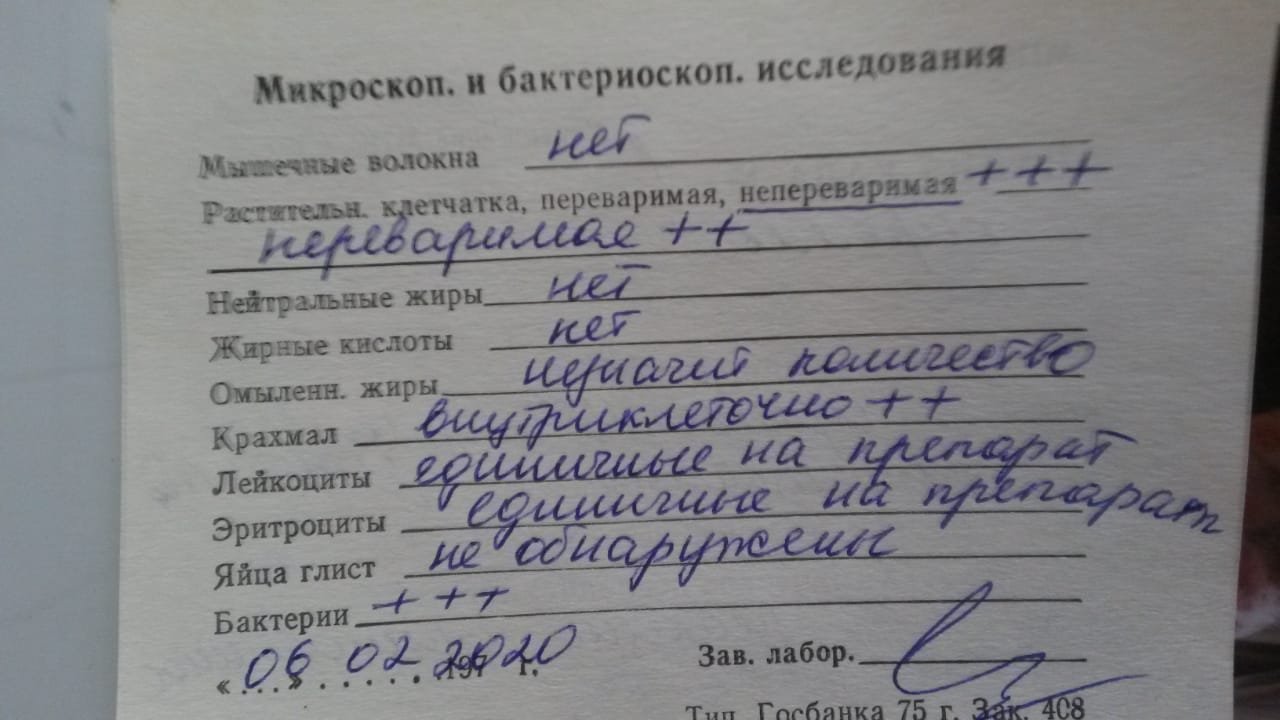 Микроскоп. и бактериоскоп. исследования
Мышечные волокна нет
Растительн. клетчатка, переваримая, непереваримая +++
переваримая ++
Нейтральные жиры нет
Жирные кислоты нет
Омыленн. жиры незначит количество
Крахмал внутриклеточно ++
Лейкоциты единичные на препарат
Эритроциты единичные на препарат
Яйца глист не обнаружены
Бактерии +++
«06» 02 2020 197 г.
Зав. лабор.
Тип. Госбанка 75 г. Зак. 408